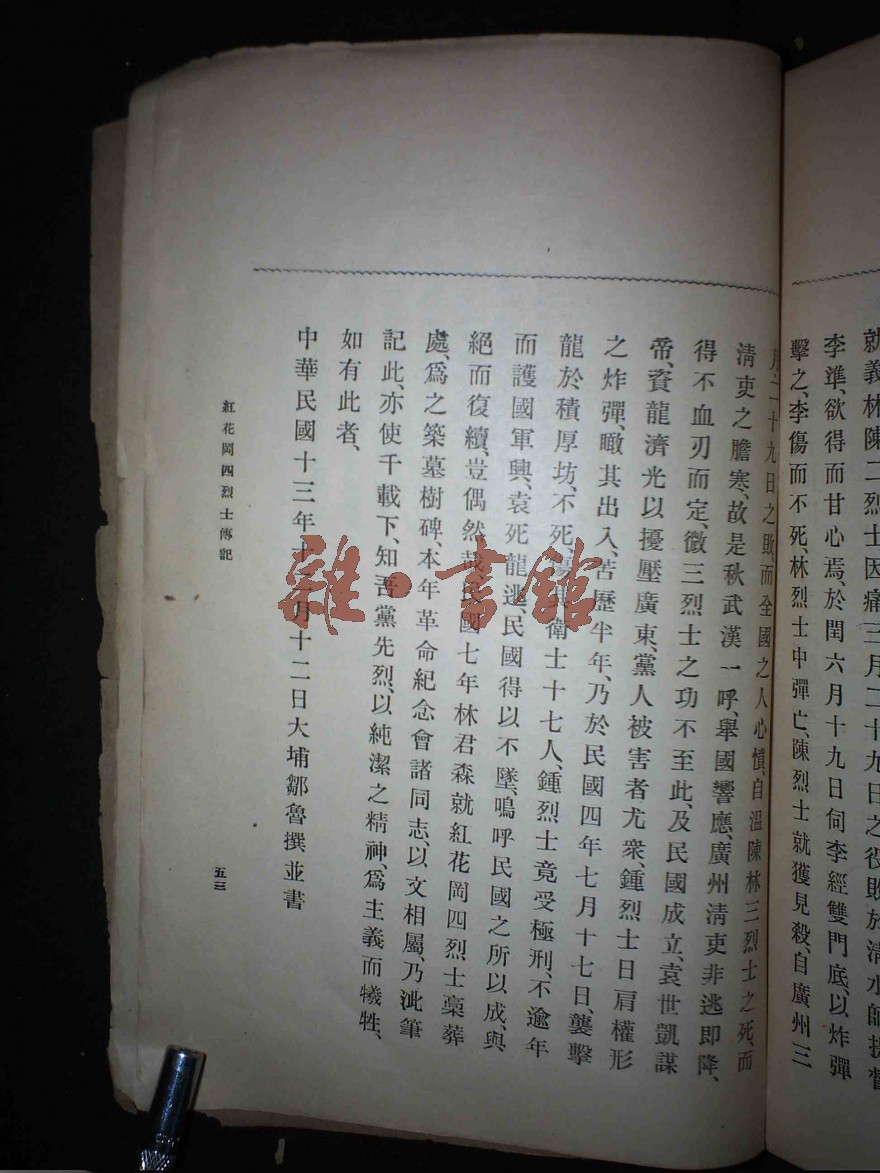 就義林陳二烈士因痛三月二十九日之役敗於清水師提督
李準、欲得而甘心焉、於閏六月十九日伺李經雙門底、以炸彈
擊之、李傷而不死、林烈士中彈亡、陳烈士就獲見殺、自廣州三
月二十九日之敗、而全國之人心憤、自溫陳林三烈士之死、而
清吏之膽寒、故是秋武漢一呼、舉國響應、廣州清吏非逃即降、
得不血刃而定、微三烈士之功不至此、及民國成立、袁世凱謀
帝、資龍濟光以擾壓廣東、黨人被害者尤衆、鍾烈士日肩權形
之炸彈、瞰其出入、苦歷半年、乃於民國四年七月十七日、襲擊
龍於積厚坊、不死、傷其衛士十七人、鍾烈士竟受極刑、不逾年
而護國軍興、袁死龍逃、民國得以不墜、嗚呼民國之所以成、與
絕而復續、豈偶然哉、民國七年林君森就紅花岡四烈士稾葬
處、爲之築墓樹碑、本年革命紀念會諸同志、以文相屬、乃泚筆
記此、亦使千載下、知吾黨先烈、以純潔之精神、爲主義而犧牲、
如有此者、
中華民國十三年十月十二日大埔鄒魯撰並書
紅花岡四烈士傳記
五三
雜·書館